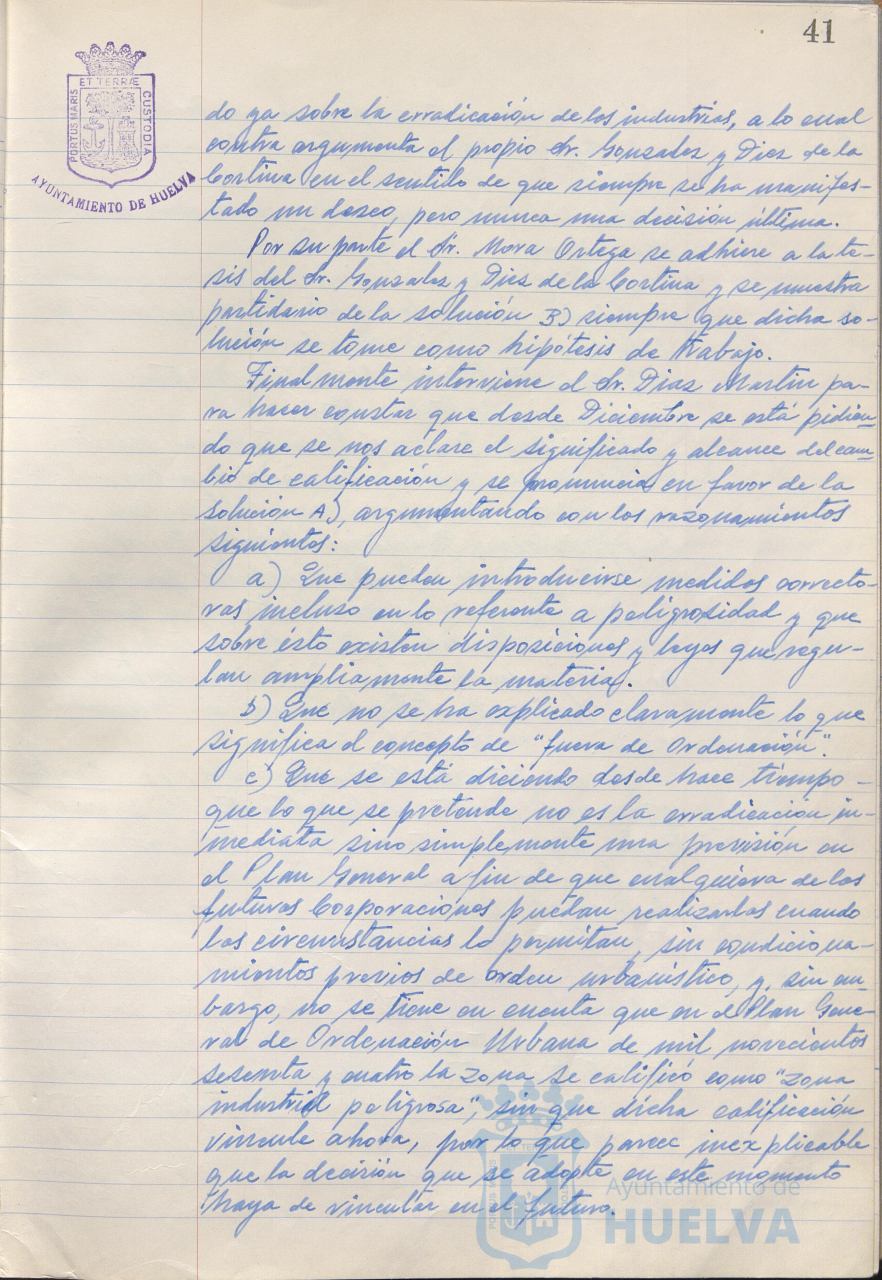 41
PORTUS MARIS
ET TERRÆ
CUSTODIA
AYUNTAMIENTO DE HUELVA
do ya sobre la erradicación de las industrias, a lo cual
contra argumenta el propio Sr. Gonzalez y Diez de la
Cortina en el sentido de que siempre se ha manifes-
tado un deseo, pero nunca una decisión última.
Por su parte el Sr. Mora Ortega se adhiere a la te-
sis del Sr. Gonzalez y Diez de la Cortina y se muestra
partidario de la solución B) siempre que dicha so-
lución se tome como hipótesis de trabajo.
Finalmente interviene el Sr. Diaz Martin pa-
ra hacer constar que desde Diciembre se está pidien-
do que se nos aclare el significado y alcance del cam-
bio de calificación y se pronuncia en favor de la
solución A), argumentando con los razonamientos
siguientes:
a) Que pueden introducirse medidas correcto-
ras incluso en lo referente a peligrosidad y que
sobre ésto existen disposiciones y leyes que regu-
lan ampliamente la materia.
b) Que no se ha explicado claramente lo que
significa el concepto de "fuera de Ordenación".
c) Que se está diciendo desde hace tiempo -
que lo que se pretende no es la erradicación in-
mediata sino simplemente una previsión en
el Plan General a fin de que cualquiera de las
futuras Corporaciones puedan realizarlas cuando
las circunstancias lo permitan, sin condiciona-
mientos previos de orden urbanístico, y, sin em-
bargo, no se tiene en cuenta que en el Plan Gene-
ral de Ordenación Urbana de mil novecientos
sesenta y cuatro la zona se calificó como "zona
industrial peligrosa", sin que dicha calificación
vincule ahora, por lo que parece inexplicable
que la decisión que se adopte en este momento
haya de vincular en el futuro.
Ayuntamiento de
HUELVA